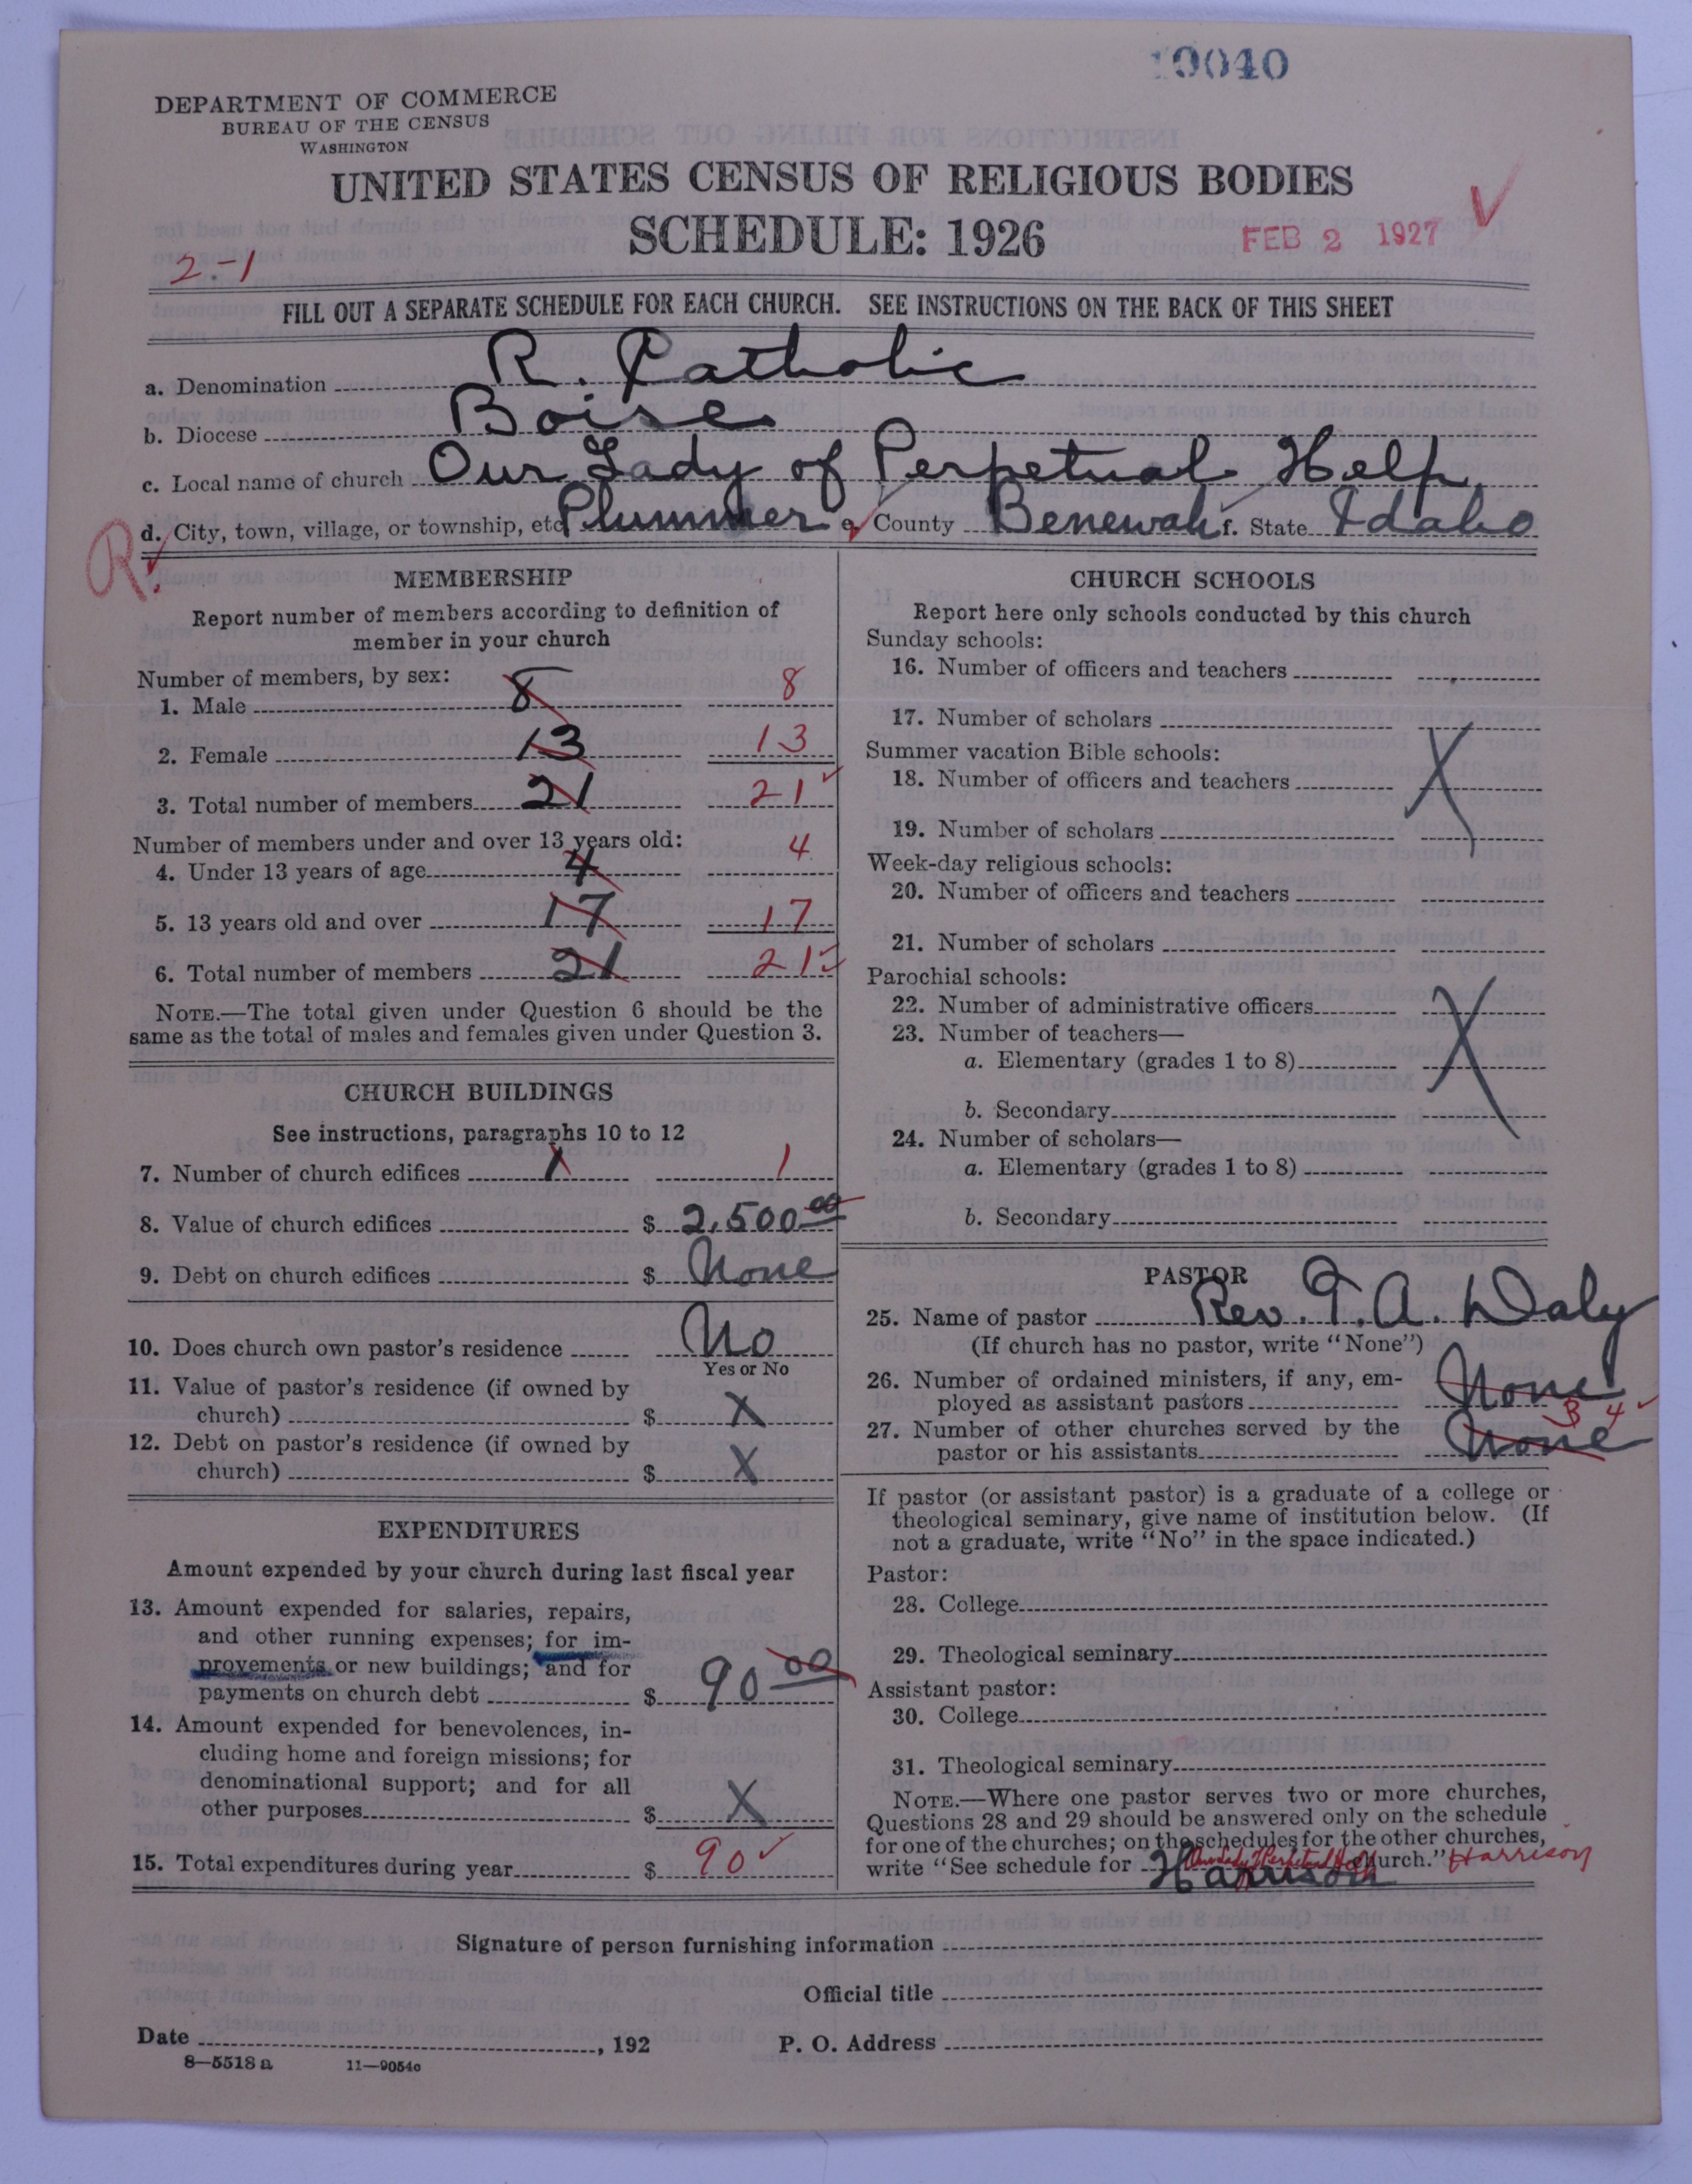 19040
DEPARTMENT OF COMMERCE
BUREAU OF THE CENSUS
WASHINGTON
UNITED STATES CENSUS OF RELIGIOUS BODIES
SCHEDULE: 1926
FEB 2 1927
2-1
FILL OUT A SEPARATE SCHEDULE FOR EACH CHURCH. SEE INSTRUCTIONS ON THE BACK OF THIS SHEET
a. Denomination R. Catholic
b. Diocese Boise
c. Local name of church Our Lady of Perpetual Help
d. City, town, village, or township, etc. Plummer e. County Benewah f. State Idaho
R.
MEMBERSHIP
Report number of members according to definition of
member in your church
Number of members, by sex:
1. Male 8 8
2. Female 13 13
3. Total number of members 21 21
Number of members under and over 13 years old:
4. Under 13 years of age 4 4
5. 13 years old and over 17 17
6. Total number of members 21 21
NOTE.—The total given under Question 6 should be the
same as the total of males and females given under Question 3.
CHURCH BUILDINGS
See instructions, paragraphs 10 to 12
7. Number of church edifices 1 1
8. Value of church edifices $ 2,500.00
9. Debt on church edifices $ None
10. Does church own pastor's residence No
Yes or No
11. Value of pastor's residence (if owned by
church) $ X
12. Debt on pastor's residence (if owned by
church) $ X
EXPENDITURES
Amount expended by your church during last fiscal year
13. Amount expended for salaries, repairs,
and other running expenses; for im-
provements or new buildings; and for
payments on church debt $ 90 00
14. Amount expended for benevolences, in-
cluding home and foreign missions; for
denominational support; and for all
other purposes $ X
15. Total expenditures during year $ 90
CHURCH SCHOOLS
Report here only schools conducted by this church
Sunday schools:
16. Number of officers and teachers
17. Number of scholars
Summer vacation Bible schools:
18. Number of officers and teachers X
19. Number of scholars
Week-day religious schools:
20. Number of officers and teachers
21. Number of scholars
Parochial schools:
22. Number of administrative officers
23. Number of teachers—
a. Elementary (grades 1 to 8) X
b. Secondary
24. Number of scholars—
a. Elementary (grades 1 to 8)
b. Secondary
PASTOR
25. Name of pastor Rev. T. A. Daly
(If church has no pastor, write "None")
26. Number of ordained ministers, if any, em-
ployed as assistant pastors None
27. Number of other churches served by the 3 4
pastor or his assistants None
If pastor (or assistant pastor) is a graduate of a college or
theological seminary, give name of institution below. (If
not a graduate, write "No" in the space indicated.)
Pastor:
28. College
29. Theological seminary
Assistant pastor:
30. College
31. Theological seminary
NOTE.—Where one pastor serves two or more churches,
Questions 28 and 29 should be answered only on the schedule
for one of the churches; on the schedules for the other churches,
write "See schedule for Harrison Our Lady of Perpetual Help church." Harrison
Signature of person furnishing information
Official title
Date , 192 P. O. Address
8—5518 a 11—9054c